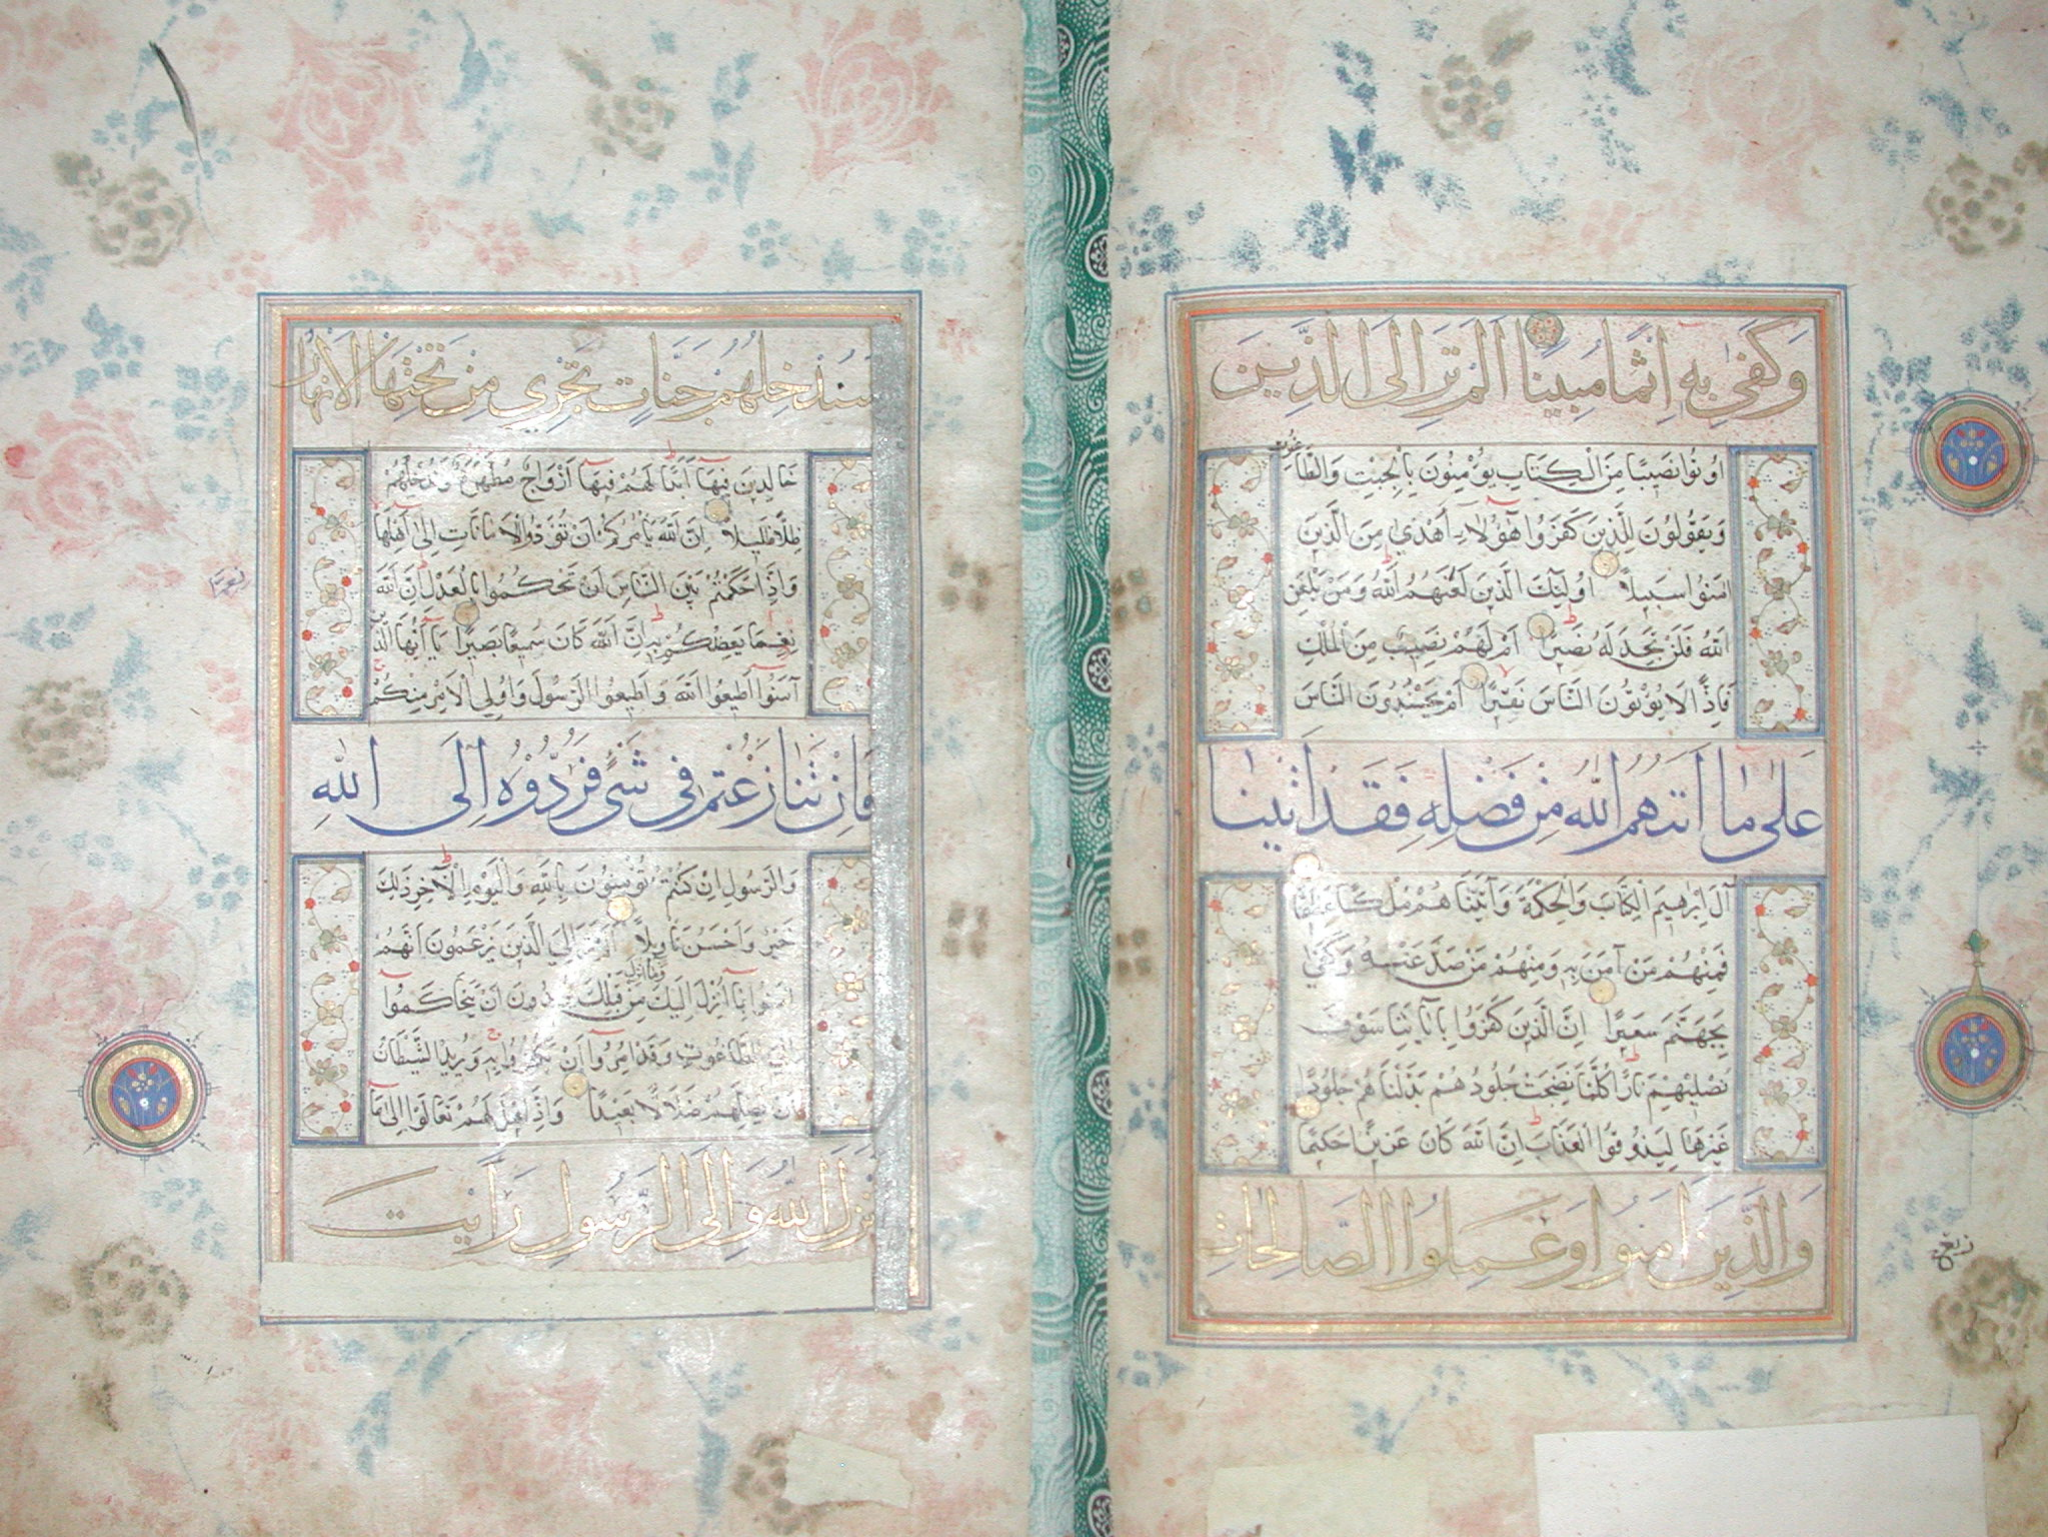 وَكَفَىٰ بِهِ اِثْمًا مُبِينًا اَلَمْ تَرَ اِلَى الَّذِينَ
اُوتُوا نَصِيبًا مِنَ الْكِتَابِ يُؤْمِنُونَ بِالْجِبْتِ وَالطَّاغُوتِ
وَيَقُولُونَ لِلَّذِينَ كَفَرُوا هٰٓؤُلَاءِ اَهْدٰى مِنَ الَّذِينَ
اٰمَنُوا سَبِيلًا اُولٰئِكَ الَّذِينَ لَعَنَهُمُ اللّٰهُ وَمَنْ يَلْعَنِ
اللّٰهُ فَلَنْ تَجِدَ لَهُ نَصِيرًا اَمْ لَهُمْ نَصِيبٌ مِنَ الْمُلْكِ
فَاِذًا لَا يُؤْتُونَ النَّاسَ نَقِيرًا اَمْ يَحْسُدُونَ النَّاسَ
عَلٰى مَا اٰتٰهُمُ اللّٰهُ مِنْ فَضْلِهِ فَقَدْ اٰتَيْنَا
اٰلَ اِبْرٰهِيمَ الْكِتَابَ وَالْحِكْمَةَ وَاٰتَيْنَا هُمْ مُلْكًا عَظِيمًا
فَمِنْهُمْ مَنْ اٰمَنَ بِهِ وَمِنْهُمْ مَنْ صَدَّ عَنْهُ وَكَفٰى
بِجَهَنَّمَ سَعِيرًا اِنَّ الَّذِينَ كَفَرُوا بِاٰيَاتِنَا سَوْفَ
نُصْلِيهِمْ نَارًا كُلَّمَا نَضِجَتْ جُلُودُهُمْ بَدَّلْنَا هُمْ جُلُودًا
غَيْرَهَا لِيَذُوقُوا الْعَذَابَ اِنَّ اللّٰهَ كَانَ عَزِيزًا حَكِيمًا
وَالَّذِينَ اٰمَنُوا وَعَمِلُوا الصَّالِحَاتِ
سَنُدْخِلُهُمْ جَنَّاتٍ تَجْرِي مِنْ تَحْتِهَا الْاَنْهَارُ
خَالِدِينَ فِيهَا اَبَدًا لَهُمْ فِيهَا اَزْوَاجٌ مُطَهَّرَةٌ وَنُدْخِلُهُمْ
ظِلًّا ظَلِيلًا اِنَّ اللّٰهَ يَأْمُرُكُمْ اَنْ تُؤَدُّوا الْاَمَانَاتِ اِلٰى اَهْلِهَا
وَاِذَا حَكَمْتُمْ بَيْنَ النَّاسِ اَنْ تَحْكُمُوا بِالْعَدْلِ اِنَّ اللّٰهَ
نِعِمَّا يَعِظُكُمْ بِهِ اِنَّ اللّٰهَ كَانَ سَمِيعًا بَصِيرًا يَا اَيُّهَا الَّذِينَ
اٰمَنُوا اَطِيعُوا اللّٰهَ وَاَطِيعُوا الرَّسُولَ وَاُولِي الْاَمْرِ مِنْكُمْ
فَاِنْ تَنَازَعْتُمْ فِي شَيْءٍ فَرُدُّوهُ اِلَى اللّٰهِ
وَالرَّسُولِ اِنْ كُنْتُمْ تُؤْمِنُونَ بِاللّٰهِ وَالْيَوْمِ الْاٰخِرِ ذٰلِكَ
خَيْرٌ وَاَحْسَنُ تَأْوِيلًا اَلَمْ تَرَ اِلَى الَّذِينَ يَزْعُمُونَ اَنَّهُمْ
اٰمَنُوا بِمَا اُنْزِلَ اِلَيْكَ وَمَا اُنْزِلَ مِنْ قَبْلِكَ يُرِيدُونَ اَنْ يَتَحَاكَمُوا
اِلَى الطَّاغُوتِ وَقَدْ اُمِرُوا اَنْ يَكْفُرُوا بِهِ وَيُرِيدُ الشَّيْطَانُ
اَنْ يُضِلَّهُمْ ضَلَالًا بَعِيدًا وَاِذَا قِيلَ لَهُمْ تَعَالَوْا اِلٰى مَا
اَنْزَلَ اللّٰهُ وَاِلَى الرَّسُولِ رَاَيْتَ